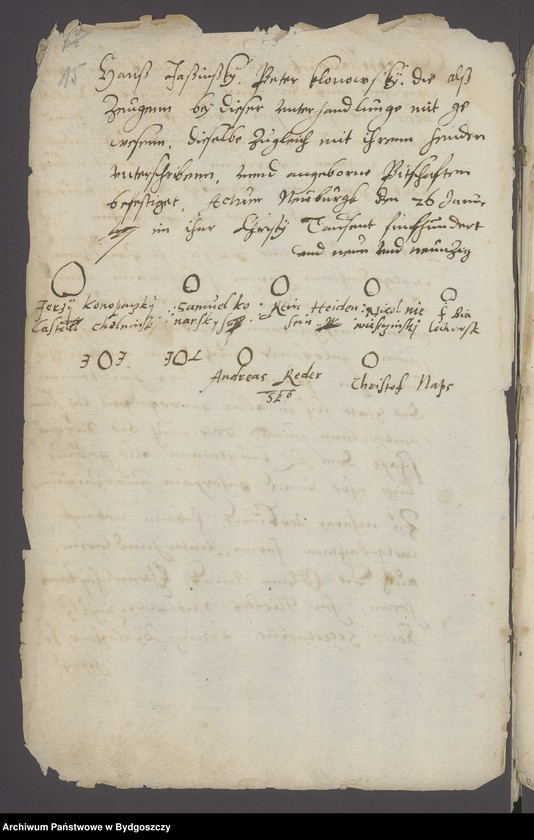 15
Hanß Jaßinsky. Peter klonowsky. die alß
Zeugenn bey dieser unterhandlunge mit ge
wesenn, dieselbe Zugleich mit ihrenn henden
unterschribenn, unnd angeborne Pitschafften
befestiget. Actum Neuburgk den 26 Janua
im ihar Christy Tausent funffhundert
unnd neun und neunzig
Jerzy Konopaczky
Castell cholminsk
Samuel Ko
narsky
Rein Heiden
stein
Nicol nie
wiesczinskj
F Bia
lochowsk
J O J
J O L
Andreas Reder
Christof Naps
Archiwum Państwowe w Bydgoszczy